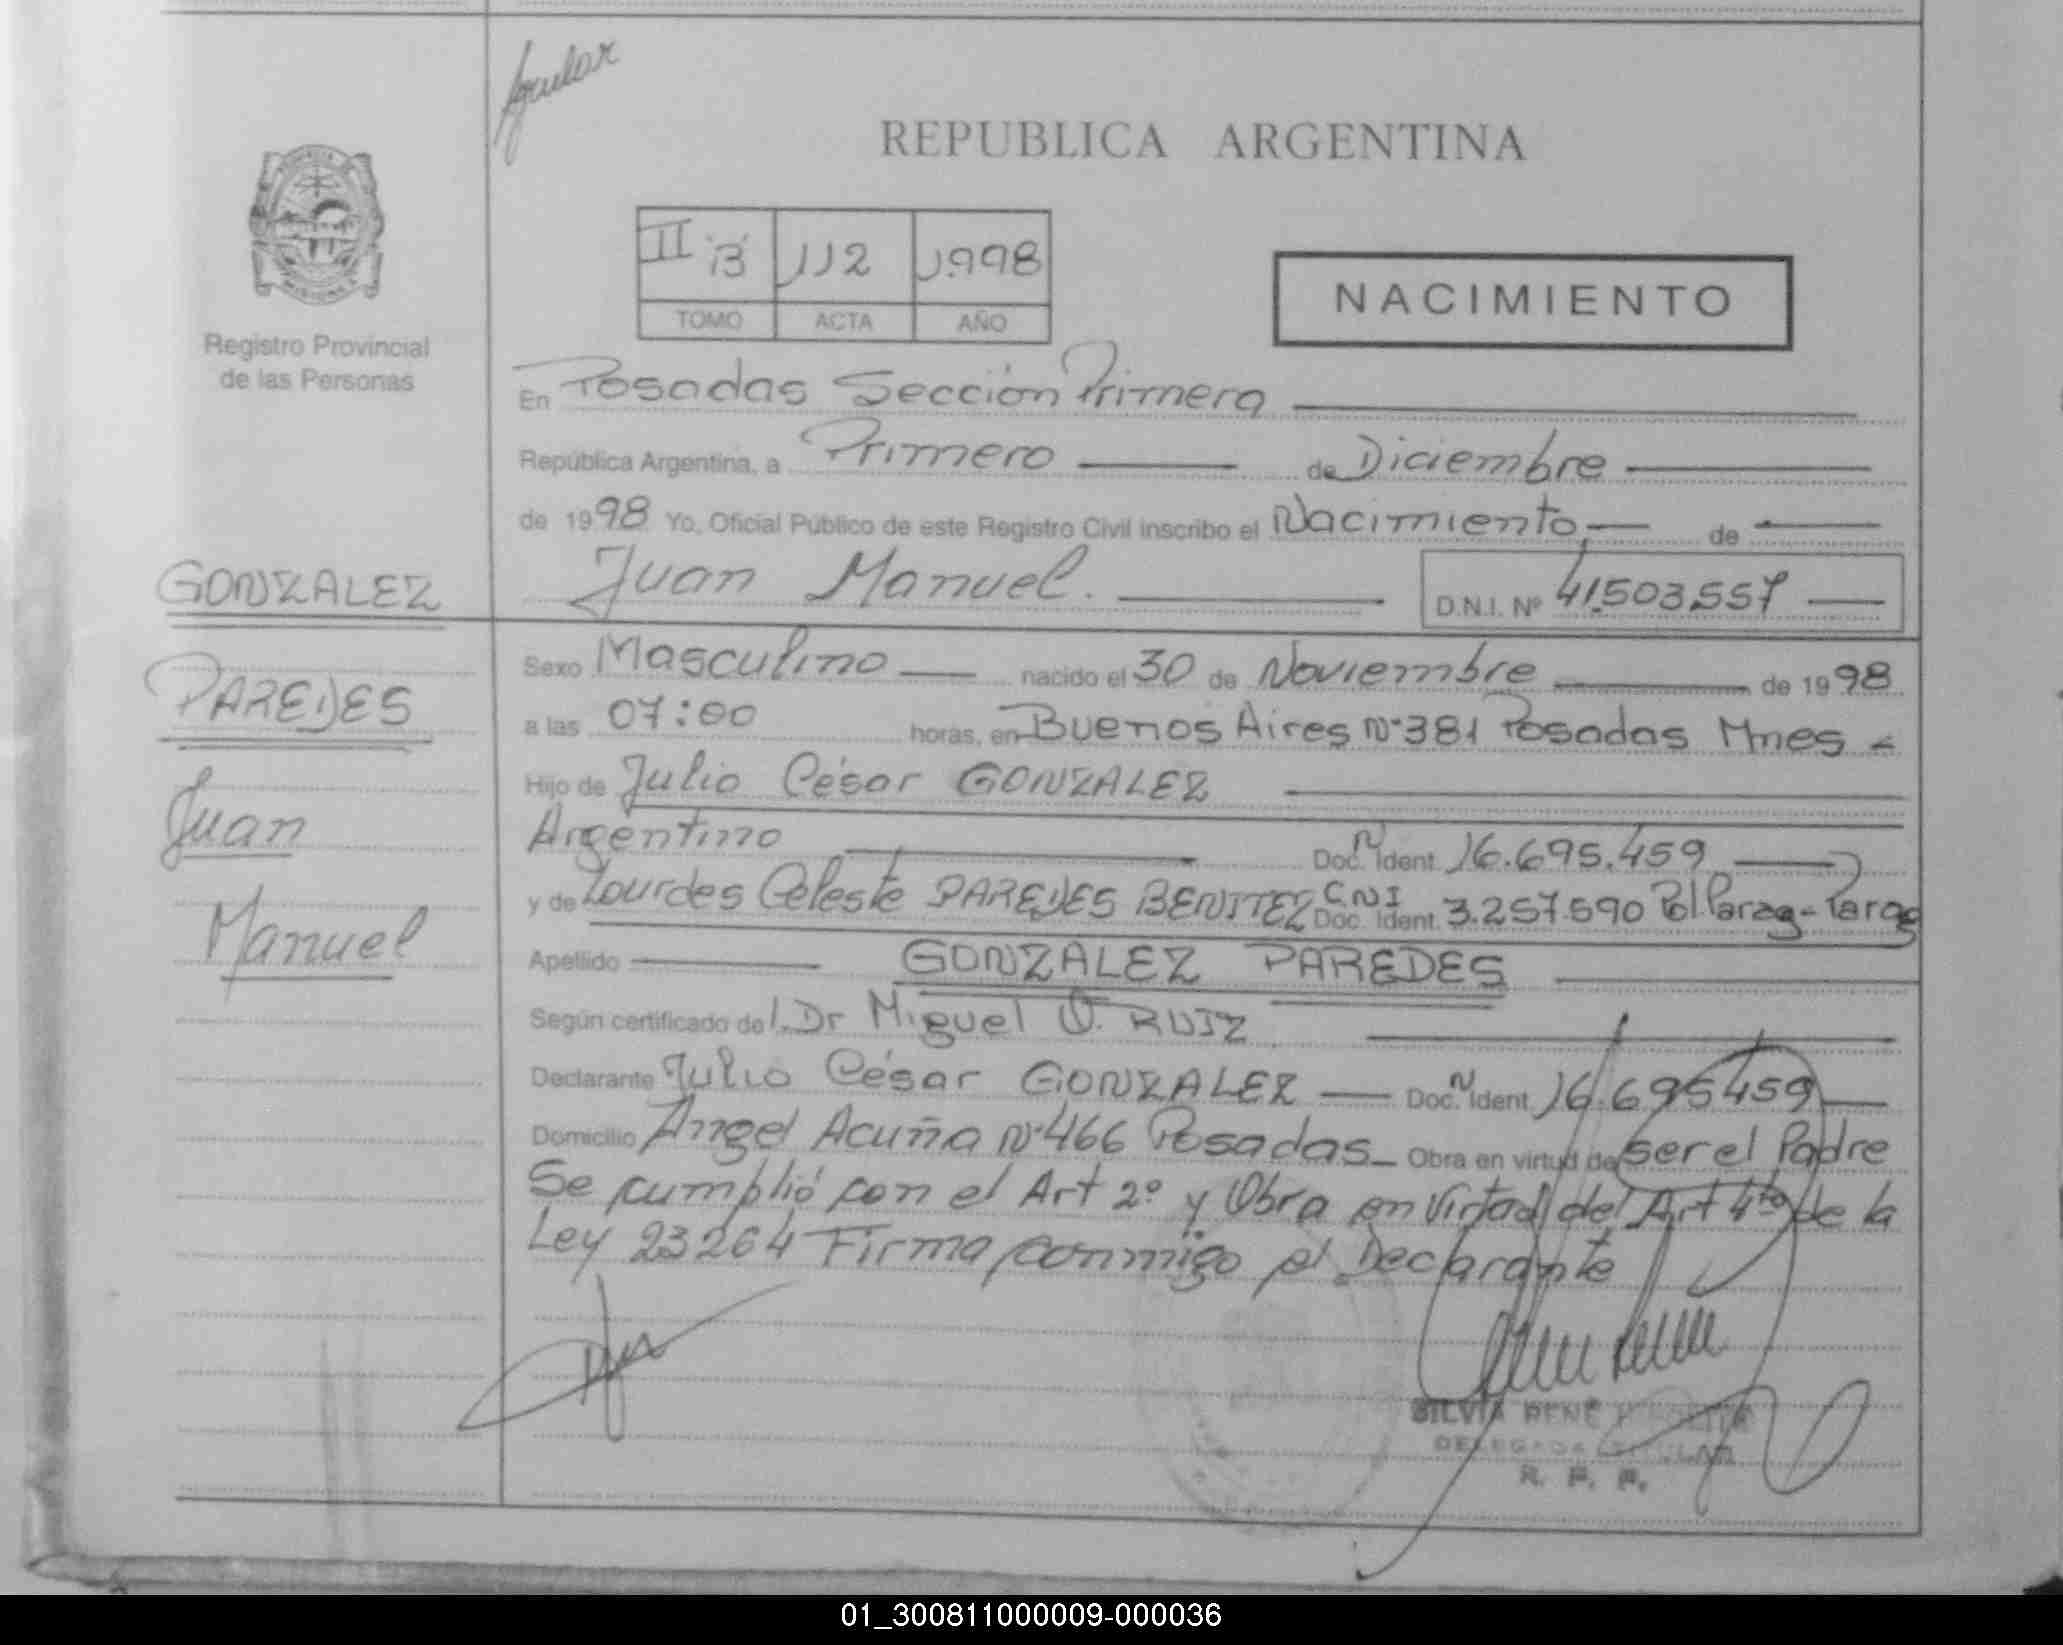 Aguilar
REPUBLICA ARGENTINA
II "B" 112 1998
TOMO ACTA AÑO
NACIMIENTO
Registro Provincial
de las Personas
En Posadas Sección Primera
República Argentina, a Primero de Diciembre
de 1998 Yo, Oficial Público de este Registro Civil inscribo el Nacimiento, de
Juan Manuel. D.N.I. Nº 41.503.557
GONZALEZ
PAREDES
Juan
Manuel
Sexo Masculino nacido el 30 de Noviembre de 1998
a las 07:00 horas, en Buenos Aires Nº 381 Posadas Mnes
Hijo de Julio César GONZALEZ
Argentino Doc. N Ident. 16.695.459
y de Lourdes Celeste PAREDES BENITEZ C.N.I Doc. Ident. 3.257.590 Pol. Parag - Parag
Apellido GONZALEZ PAREDES
Según certificado del Dr Miguel O. RUIZ
Declarante Julio César GONZALEZ Doc. N Ident. 16.695459
Domicilio Angel Acuña Nº 466 Posadas Obra en virtud de ser el Padre
Se cumplió con el Art 2º y Obra en Virtud del Art 4to de la
Ley 23264 Firma conmigo el Declarante
SILVIA RENE
DELEGADA TITULAR
R. P. P.
01_300811000009-000036